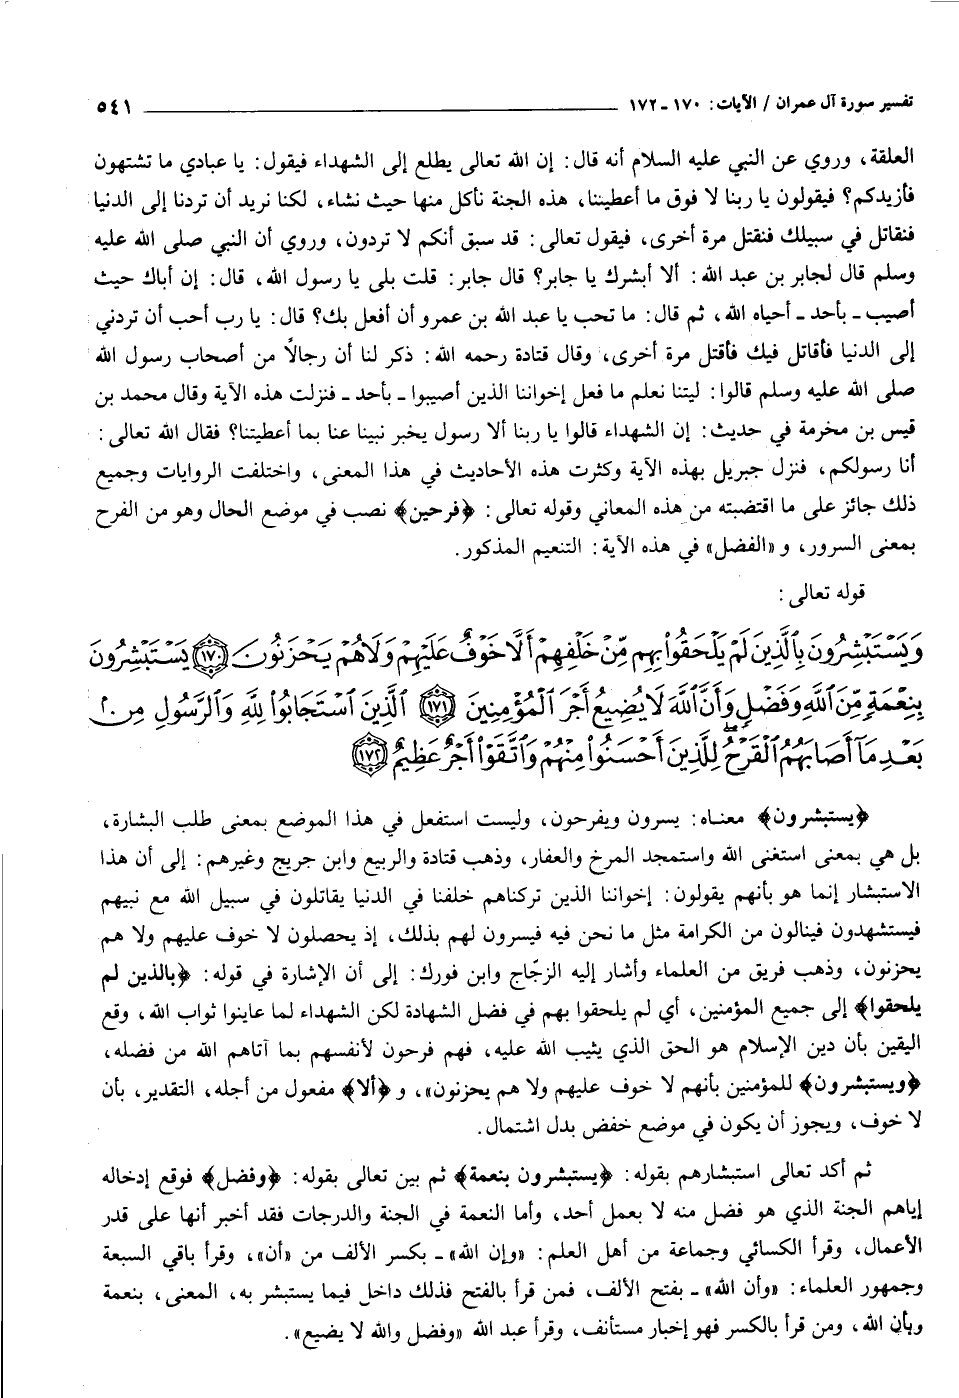 تفسير سورة آل عمران / الآيات: ١٧٠ - ١٧٢ ٥٤١
العلقة، وروي عن النبي عليه السلام أنه قال: إن الله تعالى يطلع إلى الشهداء فيقول: يا عبادي ما تشتهون
فأزيدكم؟ فيقولون يا ربنا لا فوق ما أعطيتنا، هذه الجنة نأكل منها حيث نشاء، لكنا نريد أن تردنا إلى الدنيا
فنقاتل في سبيلك فنقتل مرة أخرى، فيقول تعالى: قد سبق أنكم لا تردون، وروي أن النبي صلى الله عليه
وسلم قال لجابر بن عبد الله: ألا أبشرك يا جابر؟ قال جابر: قلت بلى يا رسول الله، قال: إن أباك حيث
أصيب - بأحد - أحياه الله، ثم قال: ما تحب يا عبد الله بن عمرو أن أفعل بك؟ قال: يا رب أحب أن تردني
إلى الدنيا فأقاتل فيك فأقتل مرة أخرى، وقال قتادة رحمه الله: ذكر لنا أن رجالاً من أصحاب رسول الله
صلى الله عليه وسلم قالوا: ليتنا نعلم ما فعل إخواننا الذين أصيبوا - بأحد - فنزلت هذه الآية وقال محمد بن
قيس بن مخرمة في حديث: إن الشهداء قالوا يا ربنا ألا رسول يخبر نبينا عنا بما أعطيتنا؟ فقال الله تعالى:
أنا رسولكم، فنزل جبريل بهذه الآية وكثرت هذه الأحاديث في هذا المعنى، واختلفت الروايات وجميع
ذلك جائز على ما اقتضبته من هذه المعاني وقوله تعالى: ﴿فرحين﴾ نصب في موضع الحال وهو من الفرح
بمعنى السرور، و «الفضل» في هذه الآية: التنعيم المذكور.
قوله تعالى:
وَيَسْتَبْشِرُونَ بِالَّذِينَ لَمْ يَلْحَقُوا بِهِم مِّنْ خَلْفِهِمْ أَلَّا خَوْفٌ عَلَيْهِمْ وَلَا هُمْ يَحْزَنُونَ ﴿١٧٠﴾ يَسْتَبْشِرُونَ
بِنِعْمَةٍ مِّنَ اللَّهِ وَفَضْلٍ وَأَنَّ اللَّهَ لَا يُضِيعُ أَجْرَ الْمُؤْمِنِينَ ﴿١٧١﴾ الَّذِينَ اسْتَجَابُوا لِلَّهِ وَالرَّسُولِ مِن
بَعْدِ مَا أَصَابَهُمُ الْقَرْحُ لِلَّذِينَ أَحْسَنُوا مِنْهُمْ وَاتَّقَوْا أَجْرٌ عَظِيمٌ ﴿١٧٢﴾
﴿يستبشرون﴾ معناه: يسرون ويفرحون، وليست استفعل في هذا الموضع بمعنى طلب البشارة،
بل هي بمعنى استغنى الله واستمجد المرخ والعفار، وذهب قتادة والربيع وابن جريج وغيرهم: إلى أن هذا
الاستبشار إنما هو بأنهم يقولون: إخواننا الذين تركناهم خلفنا في الدنيا يقاتلون في سبيل الله مع نبيهم
فيستشهدون فينالون من الكرامة مثل ما نحن فيه فيسرون لهم بذلك، إذ يحصلون لا خوف عليهم ولا هم
يحزنون، وذهب فريق من العلماء وأشار إليه الزجّاج وابن فورك: إلى أن الإشارة في قوله: ﴿بالذين لم
يلحقوا﴾ إلى جميع المؤمنين، أي لم يلحقوا بهم في فضل الشهادة لكن الشهداء لما عاينوا ثواب الله، وقع
اليقين بأن دين الإسلام هو الحق الذي يثيب الله عليه، فهم فرحون لأنفسهم بما آتاهم الله من فضله،
﴿ويستبشرون﴾ للمؤمنين بأنهم لا خوف عليهم ولا هم يحزنون»، و ﴿ألا﴾ مفعول من أجله، التقدير، بأن
لا خوف، ويجوز أن يكون في موضع خفض بدل اشتمال.
ثم أكد تعالى استبشارهم بقوله: ﴿يستبشرون بنعمة﴾ ثم بين تعالى بقوله: ﴿وفضل﴾ فوقع إدخاله
إياهم الجنة الذي هو فضل منه لا بعمل أحد، وأما النعمة في الجنة والدرجات فقد أخبر أنها على قدر
الأعمال، وقرأ الكسائي وجماعة من أهل العلم: «وإن الله» - بكسر الألف من «أن»، وقرأ باقي السبعة
وجمهور العلماء: «وأن الله» - بفتح الألف، فمن قرأ بالفتح فذلك داخل فيما يستبشر به، المعنى، بنعمة
وبأن الله، ومن قرأ بالكسر فهو إخبار مستأنف، وقرأ عبد الله «وفضل والله لا يضيع».